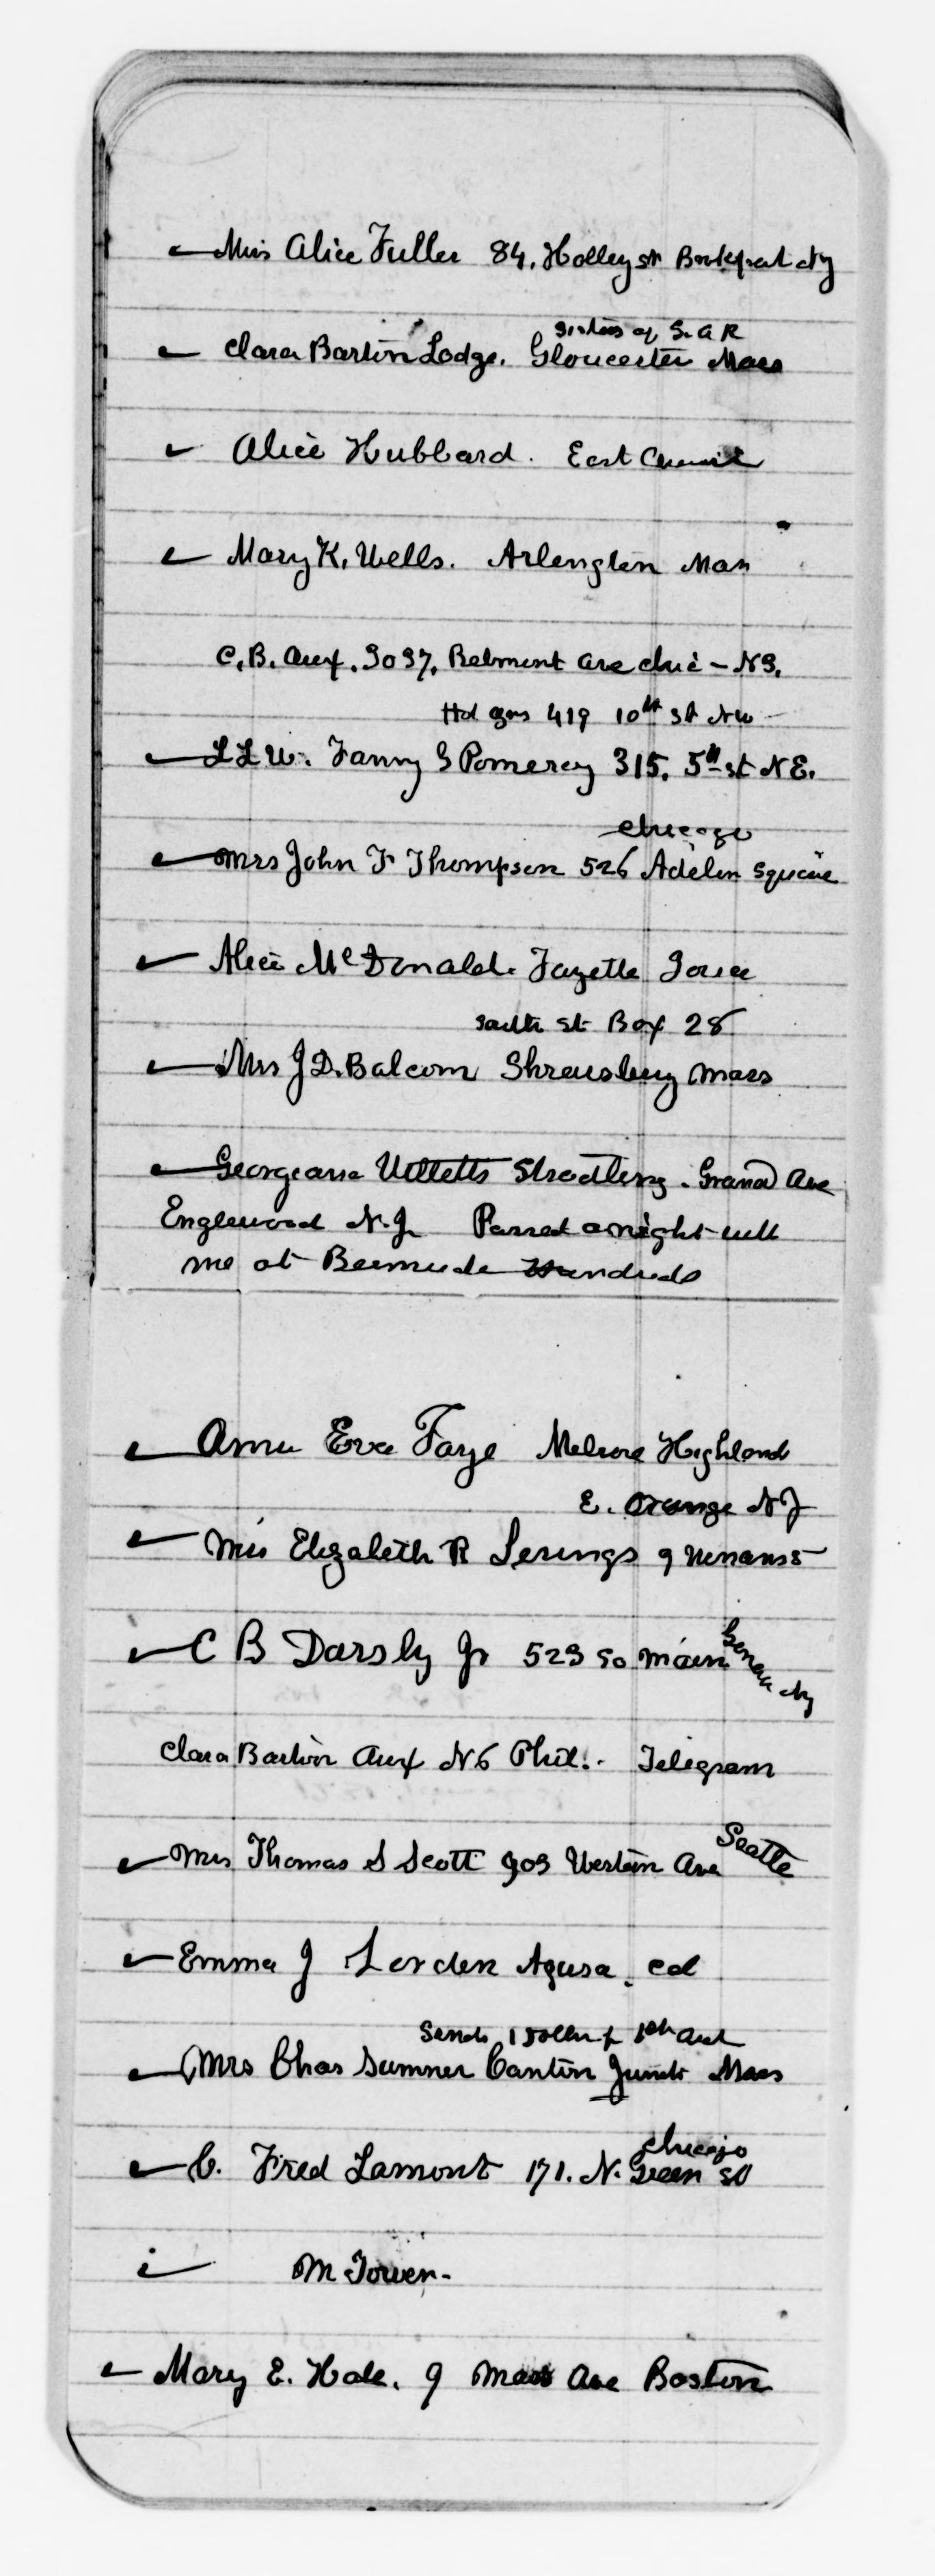 Miss Alice Fuller 84, Holley st Brockport Ny
Sisters of S. A R
Clara Barton Lodge. Gloucester Mass
Alice Hubbard. East
Mary K. Wells. Arlington Mass
C. B. Aux. 3037, Belmont Ave Chic -
Hd qrs 419 10th st NW
L L W. Fanny G Pomeroy 315, 5th st N E.
Chicago
Mrs John F Thompson 526 Square
Alice McDonald. Fayette Iowa
South St Box 28
Mrs J D. Balcom Shrewsbury Mass
Georgeana Willetts Stradling. Grand Ave
Englewood N. J. Passed a night with
me at Bermuda Hundreds
Anna Eva Faye Melrose Highland
E. Orange N J
Miss Elizabeth R 9
C B Darsly Jr 523 So Main Geneva Ny
Clara Barton Aux N 6 Phil. Telegram
Mrs Thomas S Scott 903 Western Ave Seattle
Emma J Lorden Azusa. Cal
Sends 1 dollar f
Mrs Chas Sumner Canton Junct Mass
Chicago
C. Fred Lamont 171. N. Green St
M Tower-
Mary E. Hale. 9 Mass Ave Boston